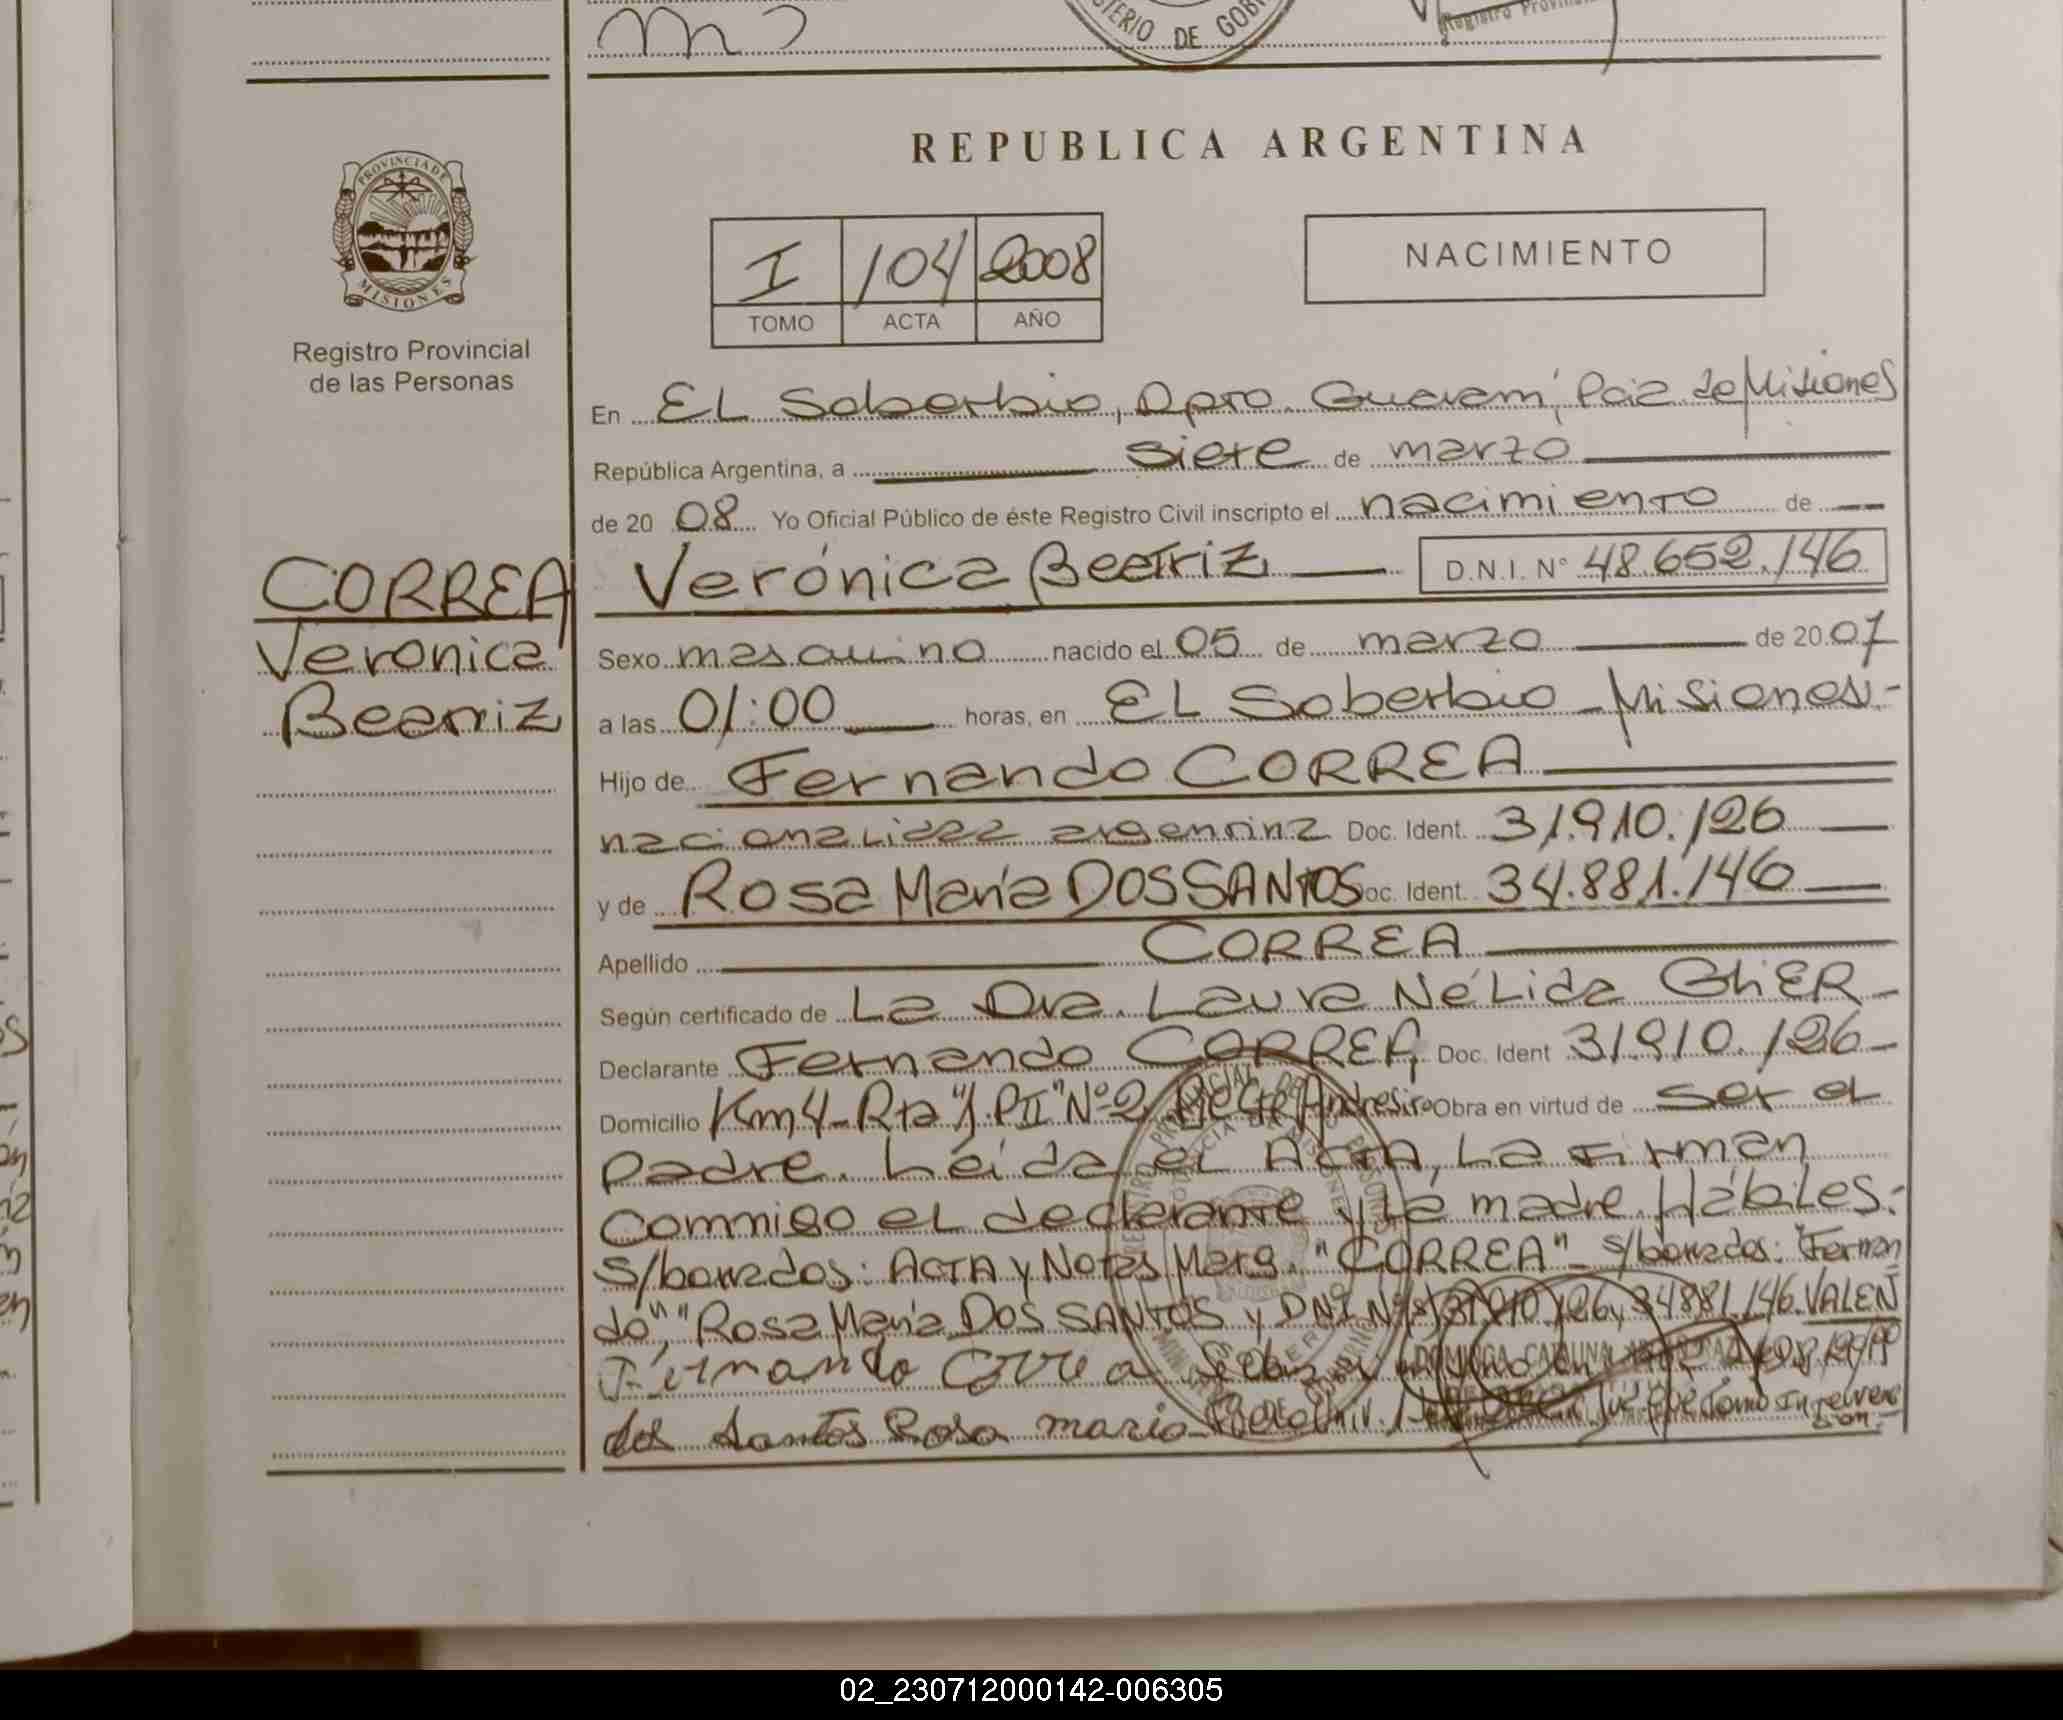 MINISTERIO DE GOBI
Registro Provin
REPUBLICA ARGENTINA
PROVINCIA DE
MISIONES
Registro Provincial
de las Personas
I 104 2008
TOMO ACTA AÑO
NACIMIENTO
En EL Soberbio, Dpto. Guaraní, Pcia de Misiones
República Argentina, a siete de marzo
de 2008 Yo Oficial Público de éste Registro Civil inscripto el nacimiento de
CORREA
Veronica
Beatriz
Verónica Beatriz D.N.I. N° 48.652.146
Sexo masculino nacido el 05 de marzo de 2007
a las 01:00 horas, en EL Soberbio - Misiones.-
Hijo de Fernando CORREA
nacionalidad argentina Doc. Ident. 31.910.126
y de Rosa María DOS SANTOS oc. Ident. 34.881.146
Apellido CORREA
Según certificado de La Dra. Laura NéLida
Declarante Fernando CORREA Doc. Ident 31910.126-
Domicilio Km4-Rta Nº2 Obra en virtud de ser el
padre. Leída el ACTA, La Firman
conmigo el declarante y La madre. HábiLes:-
s/borrados: ACTA y Notas Marg. "CORREA" - s/borrados: "Fernan
do", "Rosa María DOS SANTOS y DNI Nº 31.910.126, 34881.146. VALEN
Fernando Correa
dos Santos Rosa maria
02_230712000142-006305